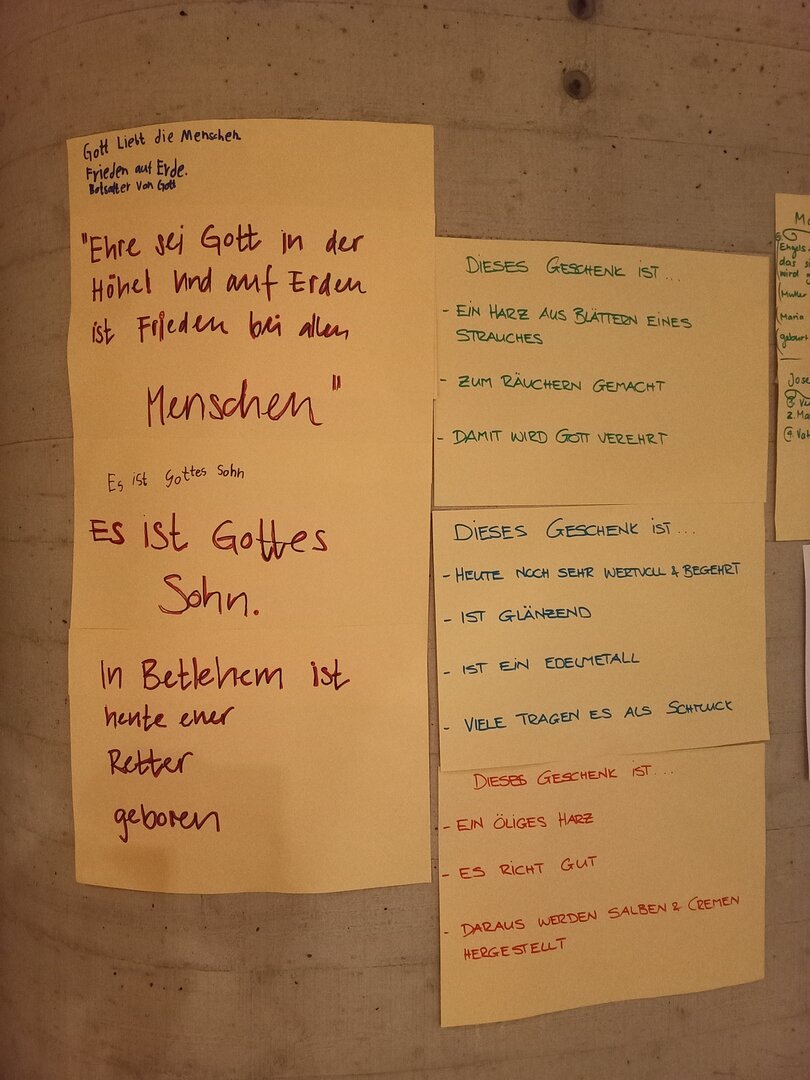 Gott Liebt die Menschen.
Frieden auf Erde.
Botschafter von Gott
"Ehre sei Gott in der
Höhe! Und auf Erden
ist Frieden bei allen
Menschen"
Es ist Gottes Sohn
Es ist Gottes
Sohn.
In Betlehem ist
heute euer
Retter
geboren
DIESES GESCHENK IST...
- EIN HARZ AUS BLÄTTERN EINES
STRAUCHES
- ZUM RÄUCHERN GEMACHT
- DAMIT WIRD GOTT VEREHRT
DIESES GESCHENK IST...
- HEUTE NOCH SEHR WERTVOLL & BEGEHRT
- IST GLÄNZEND
- IST EIN EDELMETALL
- VIELE TRAGEN ES ALS SCHMUCK
DIESES GESCHENK IST...
- EIN ÖLIGES HARZ
- ES RICHT GUT
- DARAUS WERDEN SALBEN & CREMEN
HERGESTELLT
Engels
das
wird
Mutter
Maria
geburt